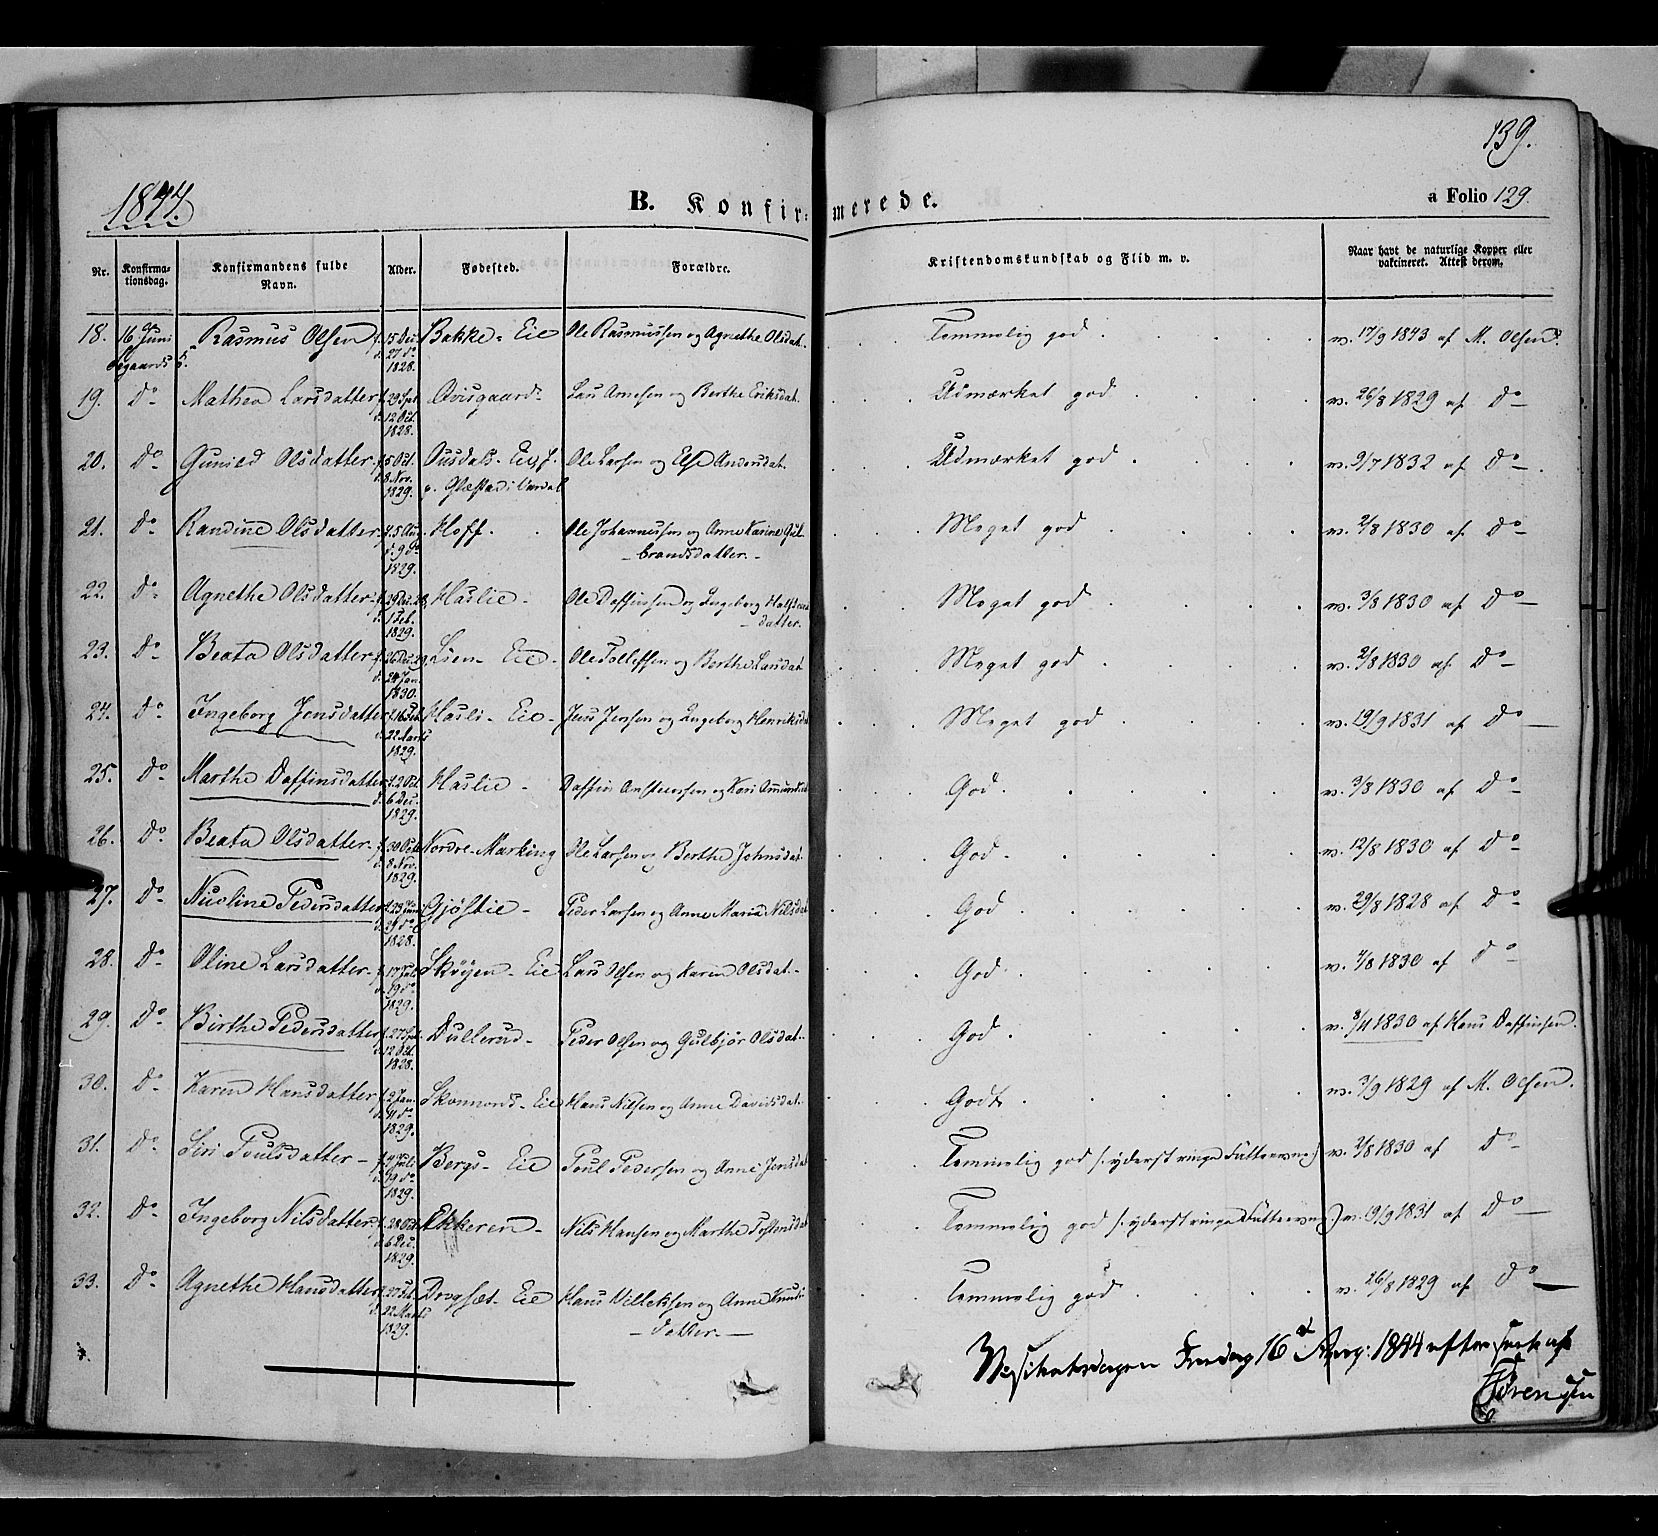 139.
1844.
B. Konfirmerede.
a Folio 129.
Nr. Konfirmationsdag. Konfirmandens fulde Navn. Alder. Fødested. Forældre. Kristendomskundskab og Flid m. v. Naar havt de naturlige Kopper eller vakcineret. Attest derom.
18. 16 Juni Rasmus Olsen f. 15 Dec. d. 27 do 1828. Bakke-Eie Ole Rasmussen og Agnethe Olsdat. Temmelig god v. 17/9 1843 af M. Olsen.
19. Do Mathea Larsdatter f. 29 Spt. d. 12 Oct. 1828. Ovisgaard Lars Arnesen og Berthe Eriksdat. Udmærket god v. 26/8 1829 af Do
20. Do Gunild Olsdatter f. 5 Oct. d. 8 Nov. 1829. Ole Larsen og Else Andersdat. Udmærket god v. 9/7 1832 af Do
21. Do Randine Olsdatter f. 5 Aug. d. 9 do 1829. Hoff. Ole Johannessen og Anne Karine Gulbrandsdatter Meget god v. 2/8 1830 af Do
22. Do Agnethe Olsdatter f. 29 Dec. 28, d. 1 Feb. 1829. Haslie Ole Daffinsen og Ingeborg datter. Meget god v. 3/8 1830 af Do
23. Do Beata Olsdatter f. 26 Dec. 29, d. 24 Jan. 1830. Lien-Eie Ole Tollefsen og Berthe Larsdat. Meget god v. 2/8 1830 af Do
24. Do Ingeborg Jensdatter d. 22 Marts 1829. Hasli-Eie Jens Jensen og Ingeborg Henriksda Meget god v. 19/9 1831 af Do
25. Do Marthe Daffinsdatter f. 2 Oct. d. 6 Dec. 1829. Haslie Daffin Anstensen og Kari God v. 3/8 1830 af Do
26. Do Beata Olsdatter f. 30 Oct. d. 8 Nov. 1829. Nordre-Marking Ole Larsen og Berthe Johnsdat. God v. 12/8 1830 af Do
27. Do Nicoline Pedersdatter f. 23 Juni d. 29 do 1828. Gjøstie Peder Larsen og Anne Maria Nilsdat God v. 29/8 1828 af Do
28. Do Oline Larsdatter f. 17 Juli d. 19 do 1829. Skøyen-Eie Lars Olsen og Karen Olsdat. God v. 7/8 1830 af Do
29. Do Birthe Pedersdatter f. 27 Spt. d. 12 Oct. 1828. Dullerud Peder Olsen og Gulbjør Olsdat. God v. 8/11 1830 af Hans Daffinsen.
30. Do Karen Hansdatter f. 2 Jan. d. 11 do 1829. Eie Hans Nilsen og Anne Davidsdat. Godt v. 3/9 1829 af M. Olsen.
31. Do Siri Poulsdatter d. 19 do 1829. Bergs-Eie Poul Pedersen og Anne Jensdat Temmelig god /: yderst ringe Fatteevne :/ v. 2/8 1830 af Do
32. Do Ingeborg Nilsdatter f. 28 Oct. d. 6 Dec. 1829. Ekkeren Nils Hansen og Marthe Tostensdat Temmelig god /: yderst ringe Fatteevne :/ v. 19/9 1831 af Do
33. Do Agnethe Hansdatter d. 22 Marts 1829. Drogset-Eie Hans Villeksen og Anne Knuds datter. Temmelig god v. 26/8 1829 af Do
Visitatsdagen Fredag 16d Aug: 1844 efterseet af
Sørensen